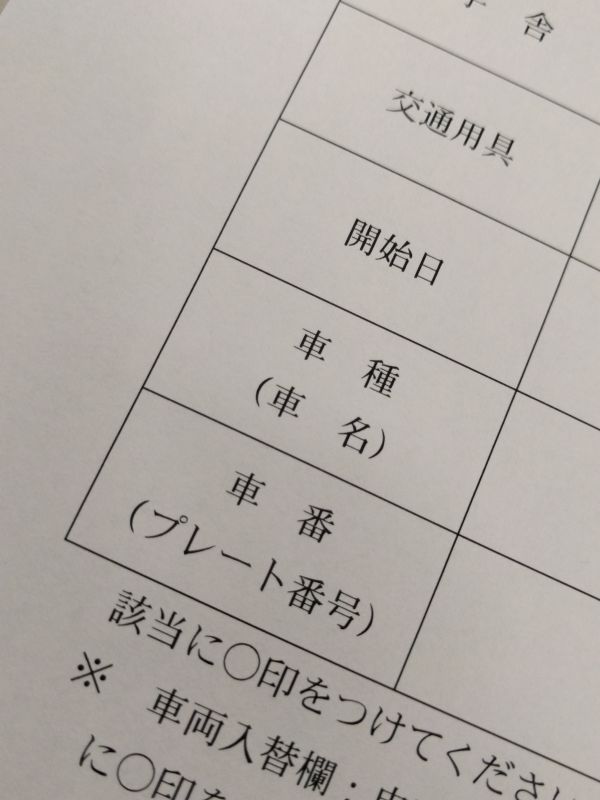 舎
交通用具
開始日
車　種
(車　名)
車　番
(プレート番号)
該当に〇印をつけてくださ
※　車両入替欄：
に〇印を